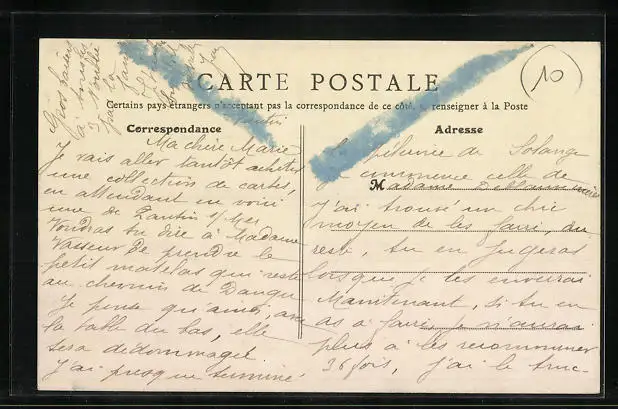 CARTE POSTALE
Certains pays étrangers n'acceptent pas la correspondance de ce côté, se renseigner à la Poste
Correspondance
Adresse
10
Pantin
Ma chère Marie
Je vais aller tantôt acheter
une collection de cartes,
en attendant en voici
une de Pantin
Voudras tu dire à Madame
Vasseur de prendre le
petit matelas qui reste
au chemin de Dangu
Je pense qu'ainsi, avec
la table du bas, elle
sera dédommagée.
J'ai presque terminé
la pèlerine de Solange
je commence celle de
Madame
j'ai trouvé un chic
moyen de les faire, du
reste, tu en jugeras
lorsque je les enverrai
Maintenant, si tu en
as à faire, je n'aurai
plus à les recommencer
36 fois, j'ai le truc
Gros baisers
à toutes
3